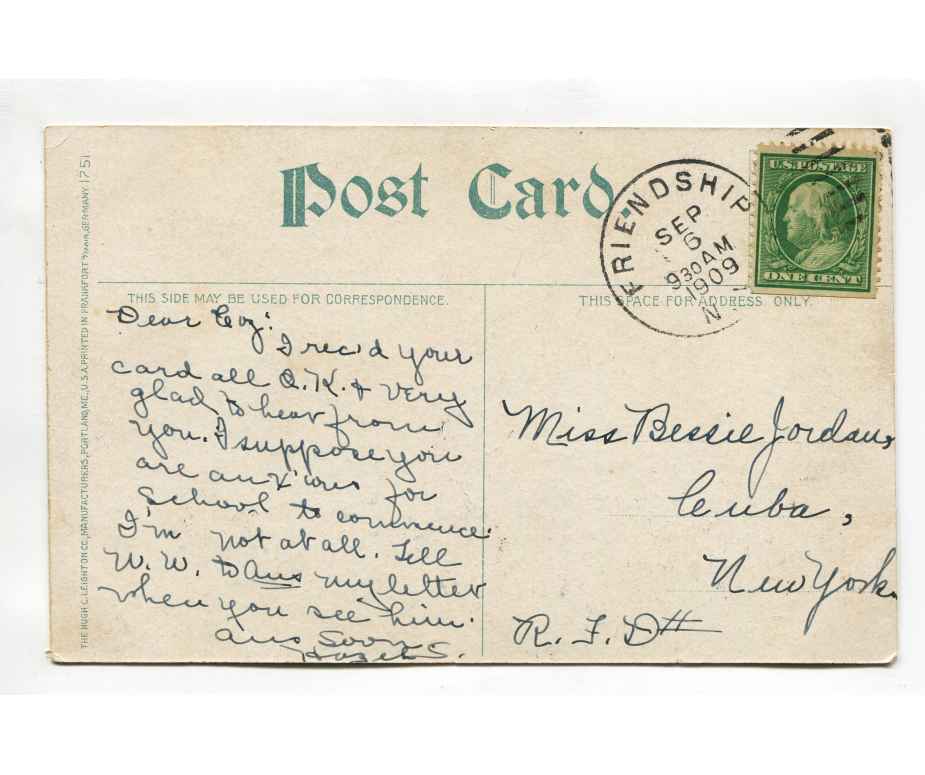 Post Card.
U.S. POSTAGE
ONE CENT
FRIENDSHIP
SEP
6
9 30 AM
1909
N
THIS SIDE MAY BE USED FOR CORRESPONDENCE.
THIS SPACE FOR ADDRESS ONLY.
Dear Coz:
I rec'd your
card all O.K. & very
glad to hear from
you. I suppose you
are anx'ious for
School to commence.
I'm not at all. Tell
W. W. to Ans my letter
when you see him.
Ans Soon
Hazel S.
Miss Bessie Jordan,
Cuba,
New York.
R. F. D
THE HUGH C. LEIGHTON CO., MANUFACTURERS, PORTLAND, ME., U.S.A. PRINTED IN FRANKFORT GERMANY. 1751